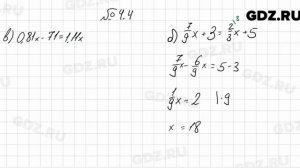 GDZ.RU
№ 4.4
в) 0,81x - 71 = 1,11x
д) 7/9 x + 3 = 2/3 x + 5
7/9 x - 6/9 x = 5 - 3
1/9 x = 2 | · 9
x = 18